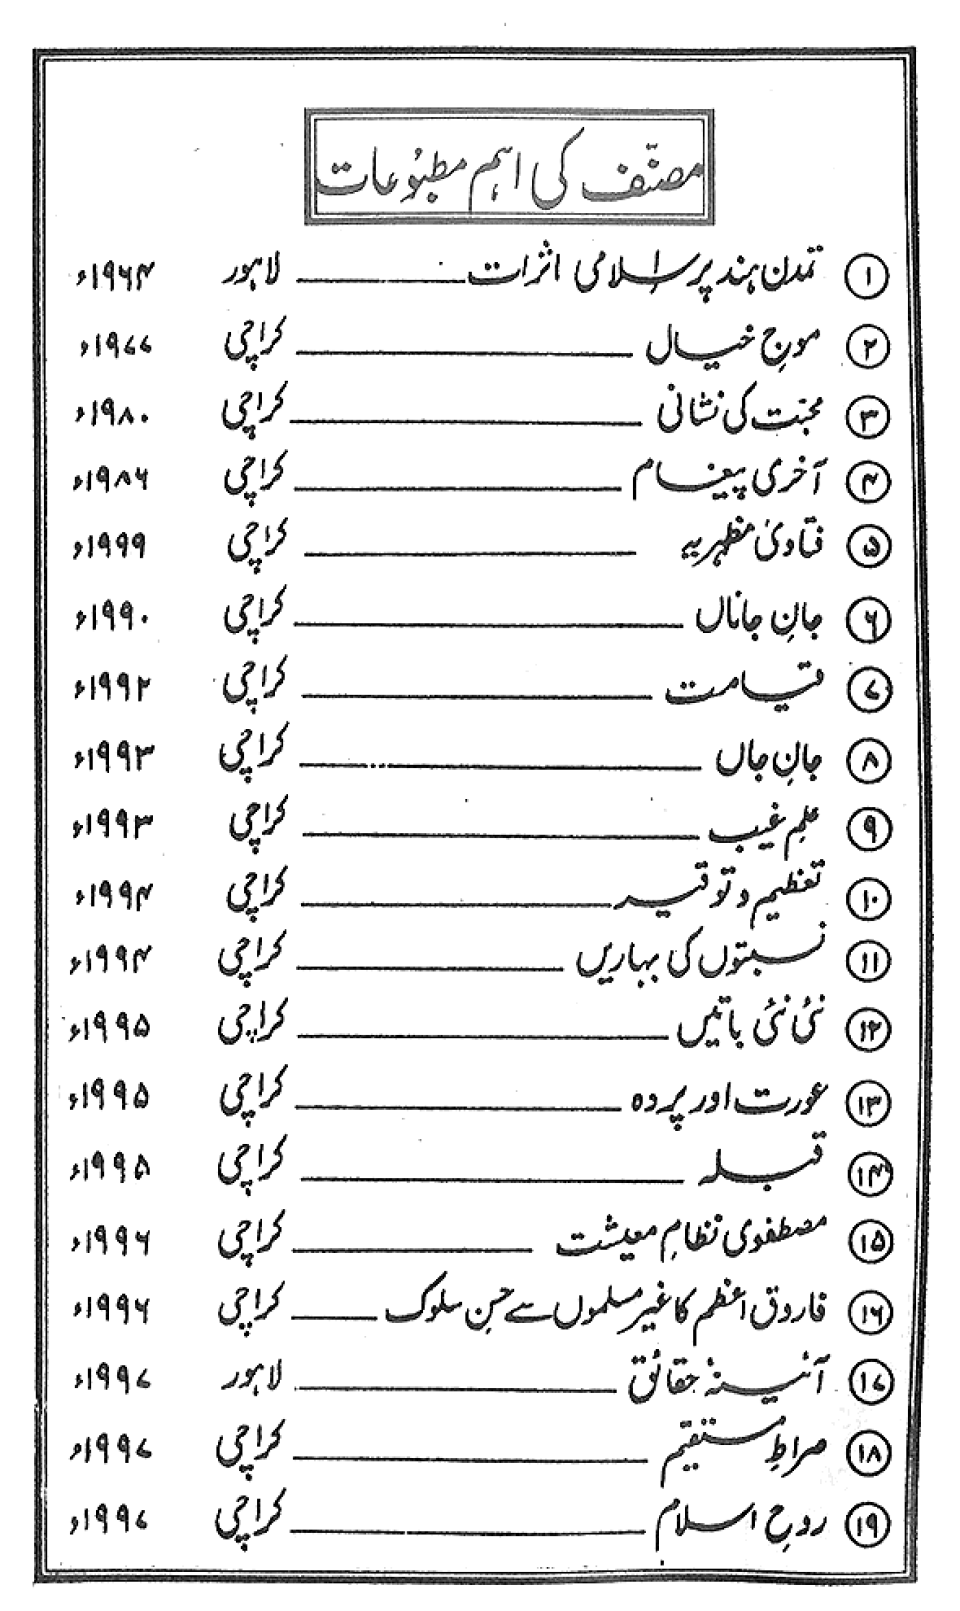 مصنّف کی اہم مطبوُعات
۱ تمدن ہند پر اسلامی اثرات لاہور ۱۹۶۴ء
۲ موجِ خیال کراچی ۱۹۷۷ء
۳ محبّت کی نشانی کراچی ۱۹۸۰ء
۴ آخری پیغام کراچی ۱۹۸۶ء
۵ فتاویٰ مظہریہ کراچی ۱۹۹۹ء
۶ جانِ جاناں کراچی ۱۹۹۰ء
۷ قیامت کراچی ۱۹۹۲ء
۸ جانِ جاں کراچی ۱۹۹۳ء
۹ علمِ غیب کراچی ۱۹۹۳ء
۱۰ تعظیم و توقیر کراچی ۱۹۹۴ء
۱۱ نسبتوں کی بہاریں کراچی ۱۹۹۴ء
۱۲ نئی نئی باتیں کراچی ۱۹۹۵ء
۱۳ عورت اور پردہ کراچی ۱۹۹۵ء
۱۴ قبلہ کراچی ۱۹۹۵ء
۱۵ مصطفوی نظامِ معیشت کراچی ۱۹۹۶ء
۱۶ فاروق اعظم کا غیر مسلموں سے حسنِ سلوک کراچی ۱۹۹۶ء
۱۷ آئینۂ حقائق لاہور ۱۹۹۷ء
۱۸ صراطِ مستقیم کراچی ۱۹۹۷ء
۱۹ روحِ اسلام کراچی ۱۹۹۷ء